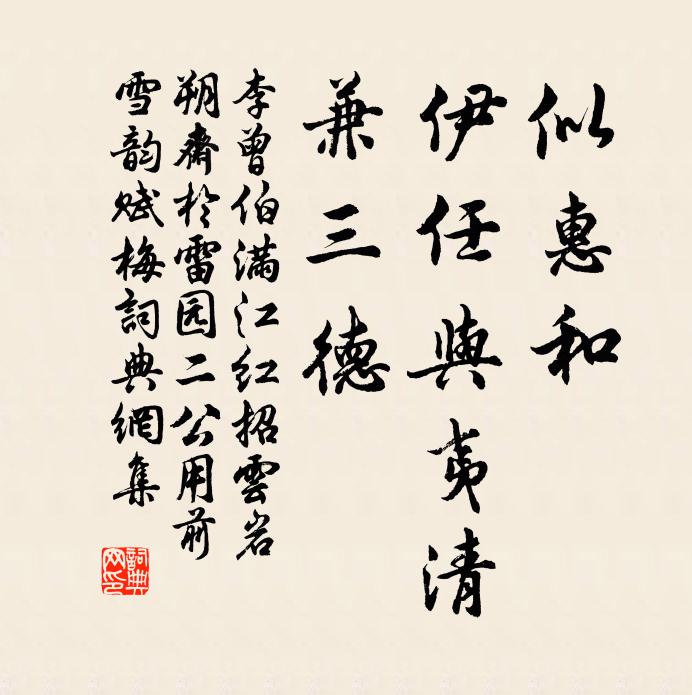 似惠和
伊任與夷清
兼三德
李曾伯滿江红招雲岩
朔齋於雷园二公用前
雪韵赋梅詞典網集
詞典
网印